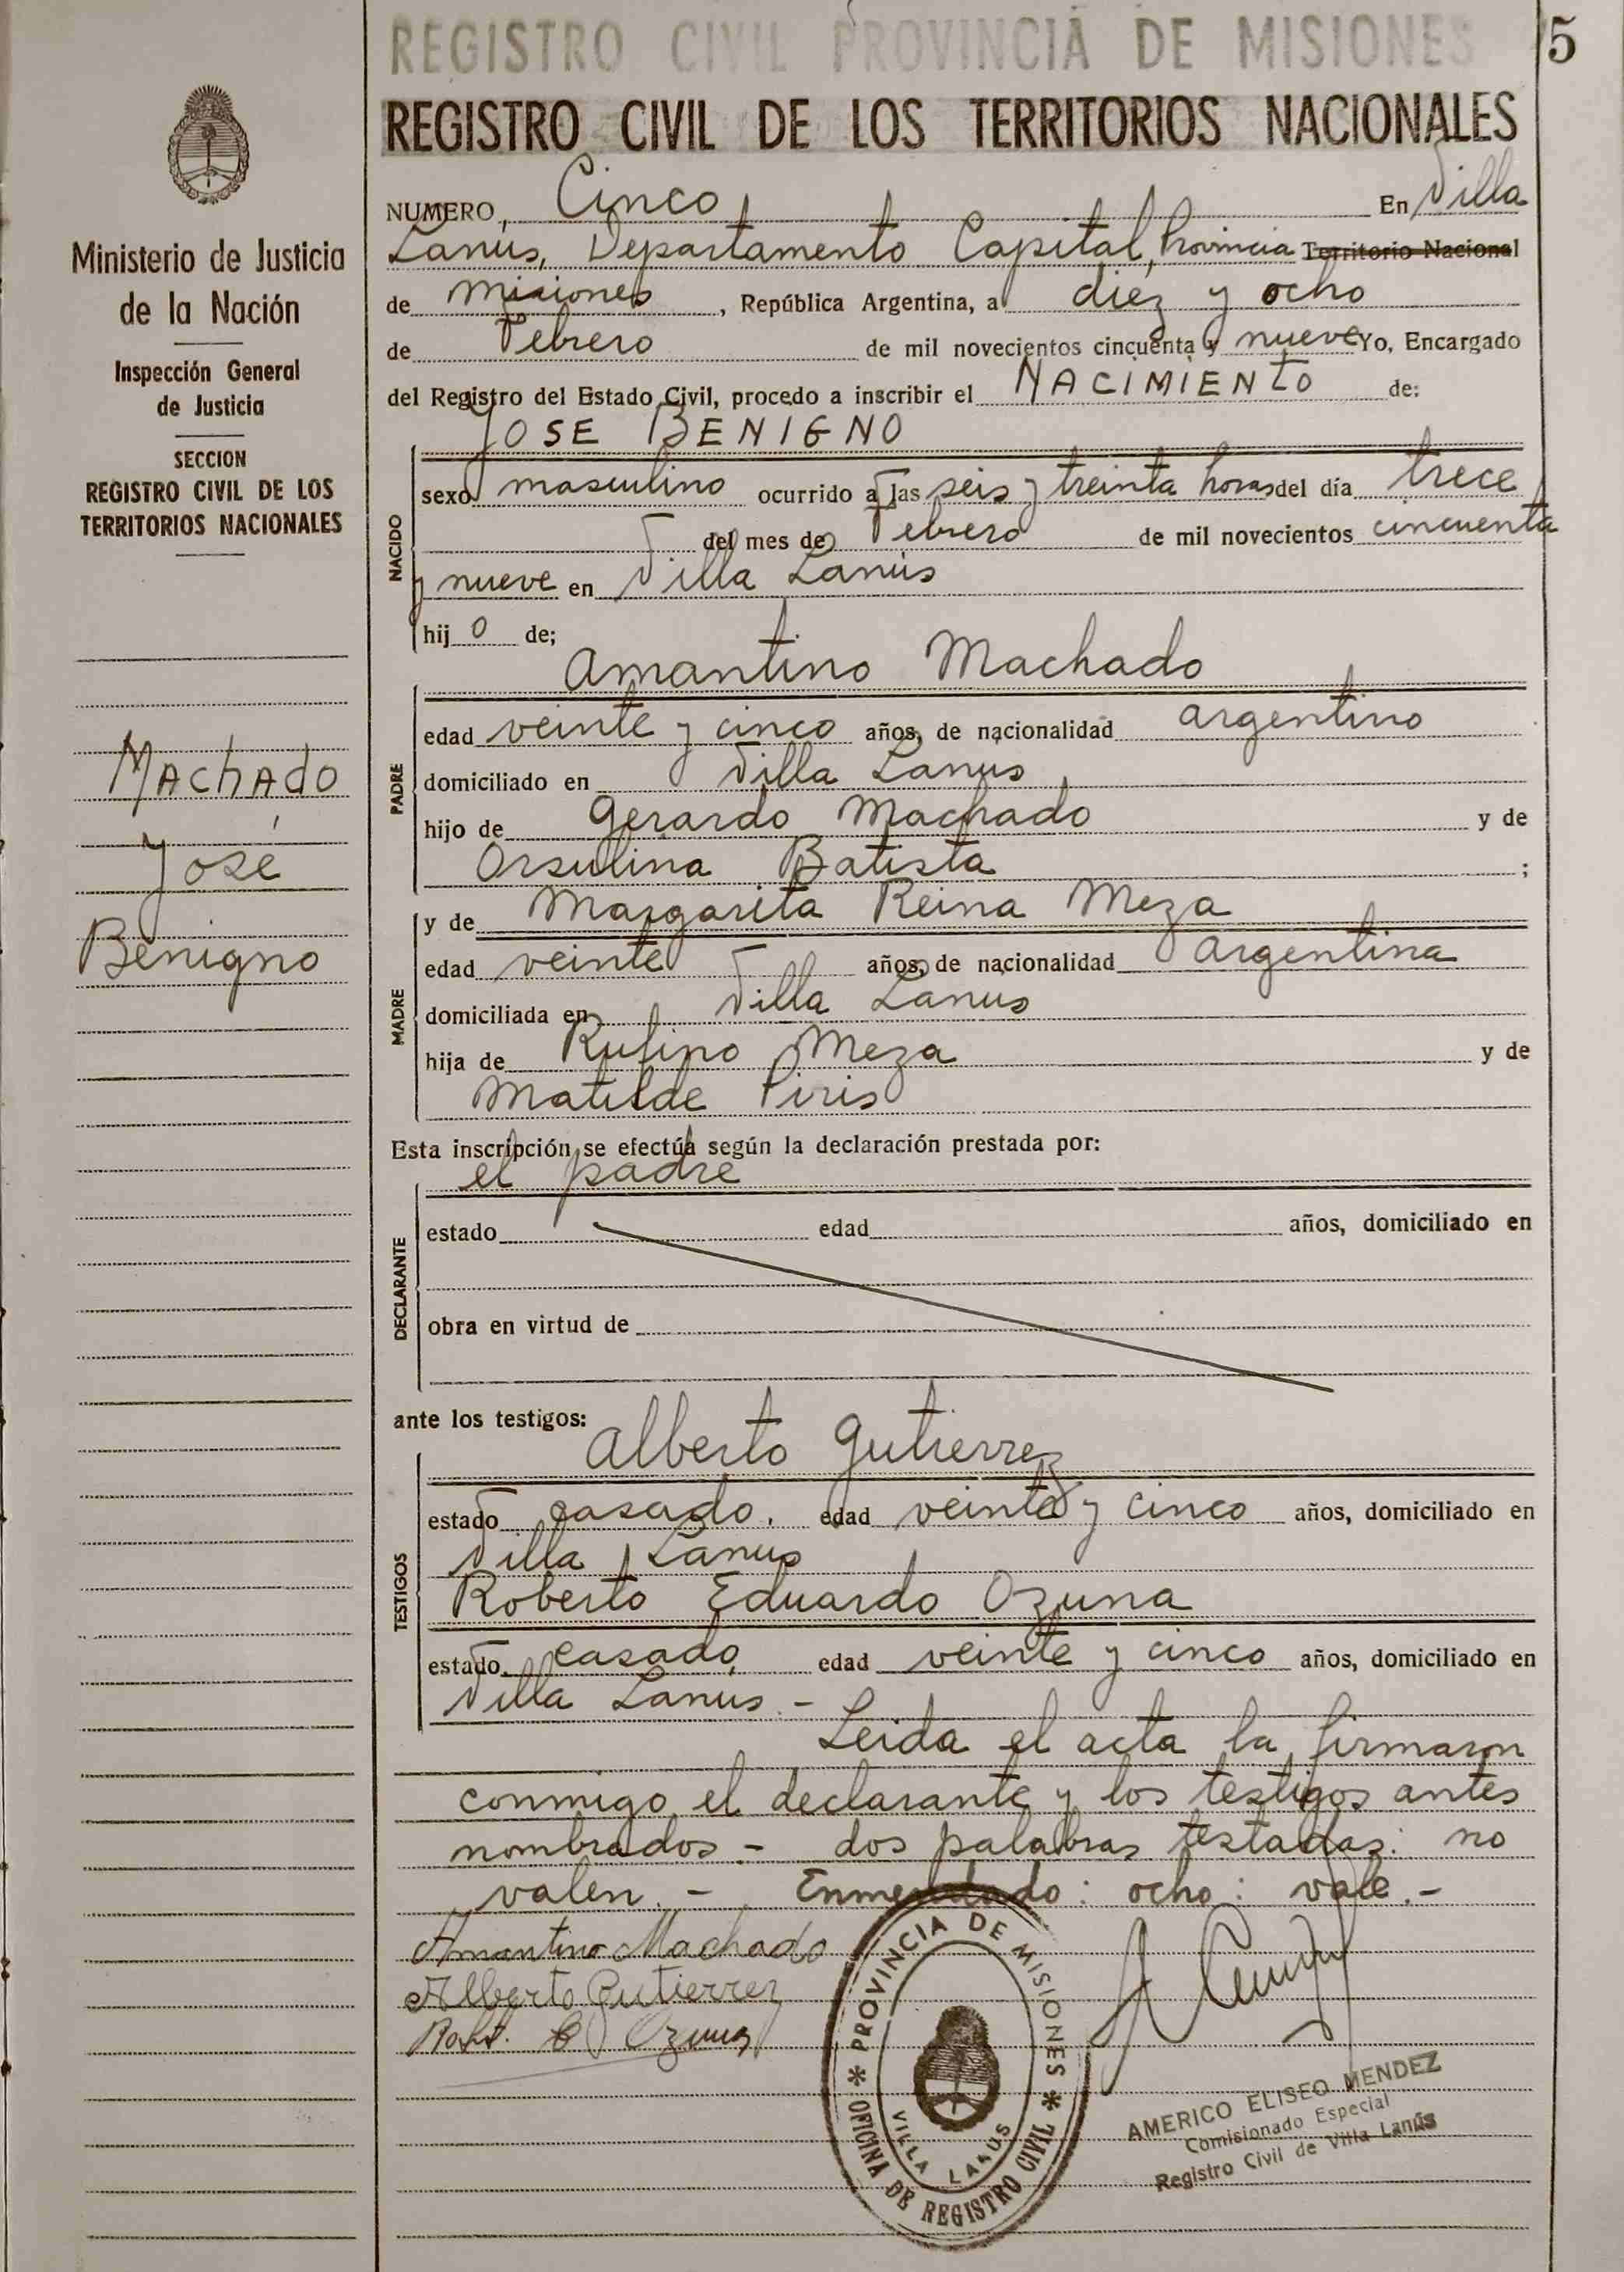 REGISTRO CIVIL PROVINCIA DE MISIONES
5
REGISTRO CIVIL DE LOS TERRITORIOS NACIONALES
Ministerio de Justicia
de la Nación
Inspección General
de Justicia
SECCION
REGISTRO CIVIL DE LOS
TERRITORIOS NACIONALES
Machado
José
Benigno
NUMERO, Cinco En Villa
Lanús, Departamento Capital, Provincia Territorio Nacional
de Misiones, República Argentina, a diez y ocho
de Febrero de mil novecientos cincuenta y nueve Yo, Encargado
del Registro del Estado Civil, procedo a inscribir el NACIMIENTO de:
JOSE BENIGNO
NACIDO
sexo masculino ocurrido a las seis y treinta horas del día trece
del mes de Febrero de mil novecientos cincuenta
y nueve en Villa Lanús
hijo de;
Amantino Machado
PADRE
edad veinte y cinco años, de nacionalidad argentino
domiciliado en Villa Lanus
hijo de Gerardo Machado y de
Orsulina Batista ;
MADRE
y de Margarita Reina Meza
edad veinte años, de nacionalidad argentina
domiciliada en Villa Lanus
hija de Rufino Meza y de
Matilde Piris
Esta inscripción se efectúa según la declaración prestada por:
el padre
DECLARANTE
estado edad años, domiciliado en
obra en virtud de
ante los testigos:
Alberto Gutierrez
TESTIGOS
estado casado. edad veinte y cinco años, domiciliado en
Villa Lanus
Roberto Eduardo Ozuna
estado casado edad veinte y cinco años, domiciliado en
Villa Lanús. -
Leida el acta la firmaron
conmigo el declarante y los testigos antes
nombrados - dos palabras testadas: no
valen. - Enmendado: ocho: vale. -
Amantino Machado
Alberto Gutierrez
Robt. E Ozuna
PROVINCIA DE MISIONES
OFICINA DE REGISTRO CIVIL
VILLA LANUS
AMERICO ELISEO MENDEZ
Comisionado Especial
Registro Civil de Villa Lanús